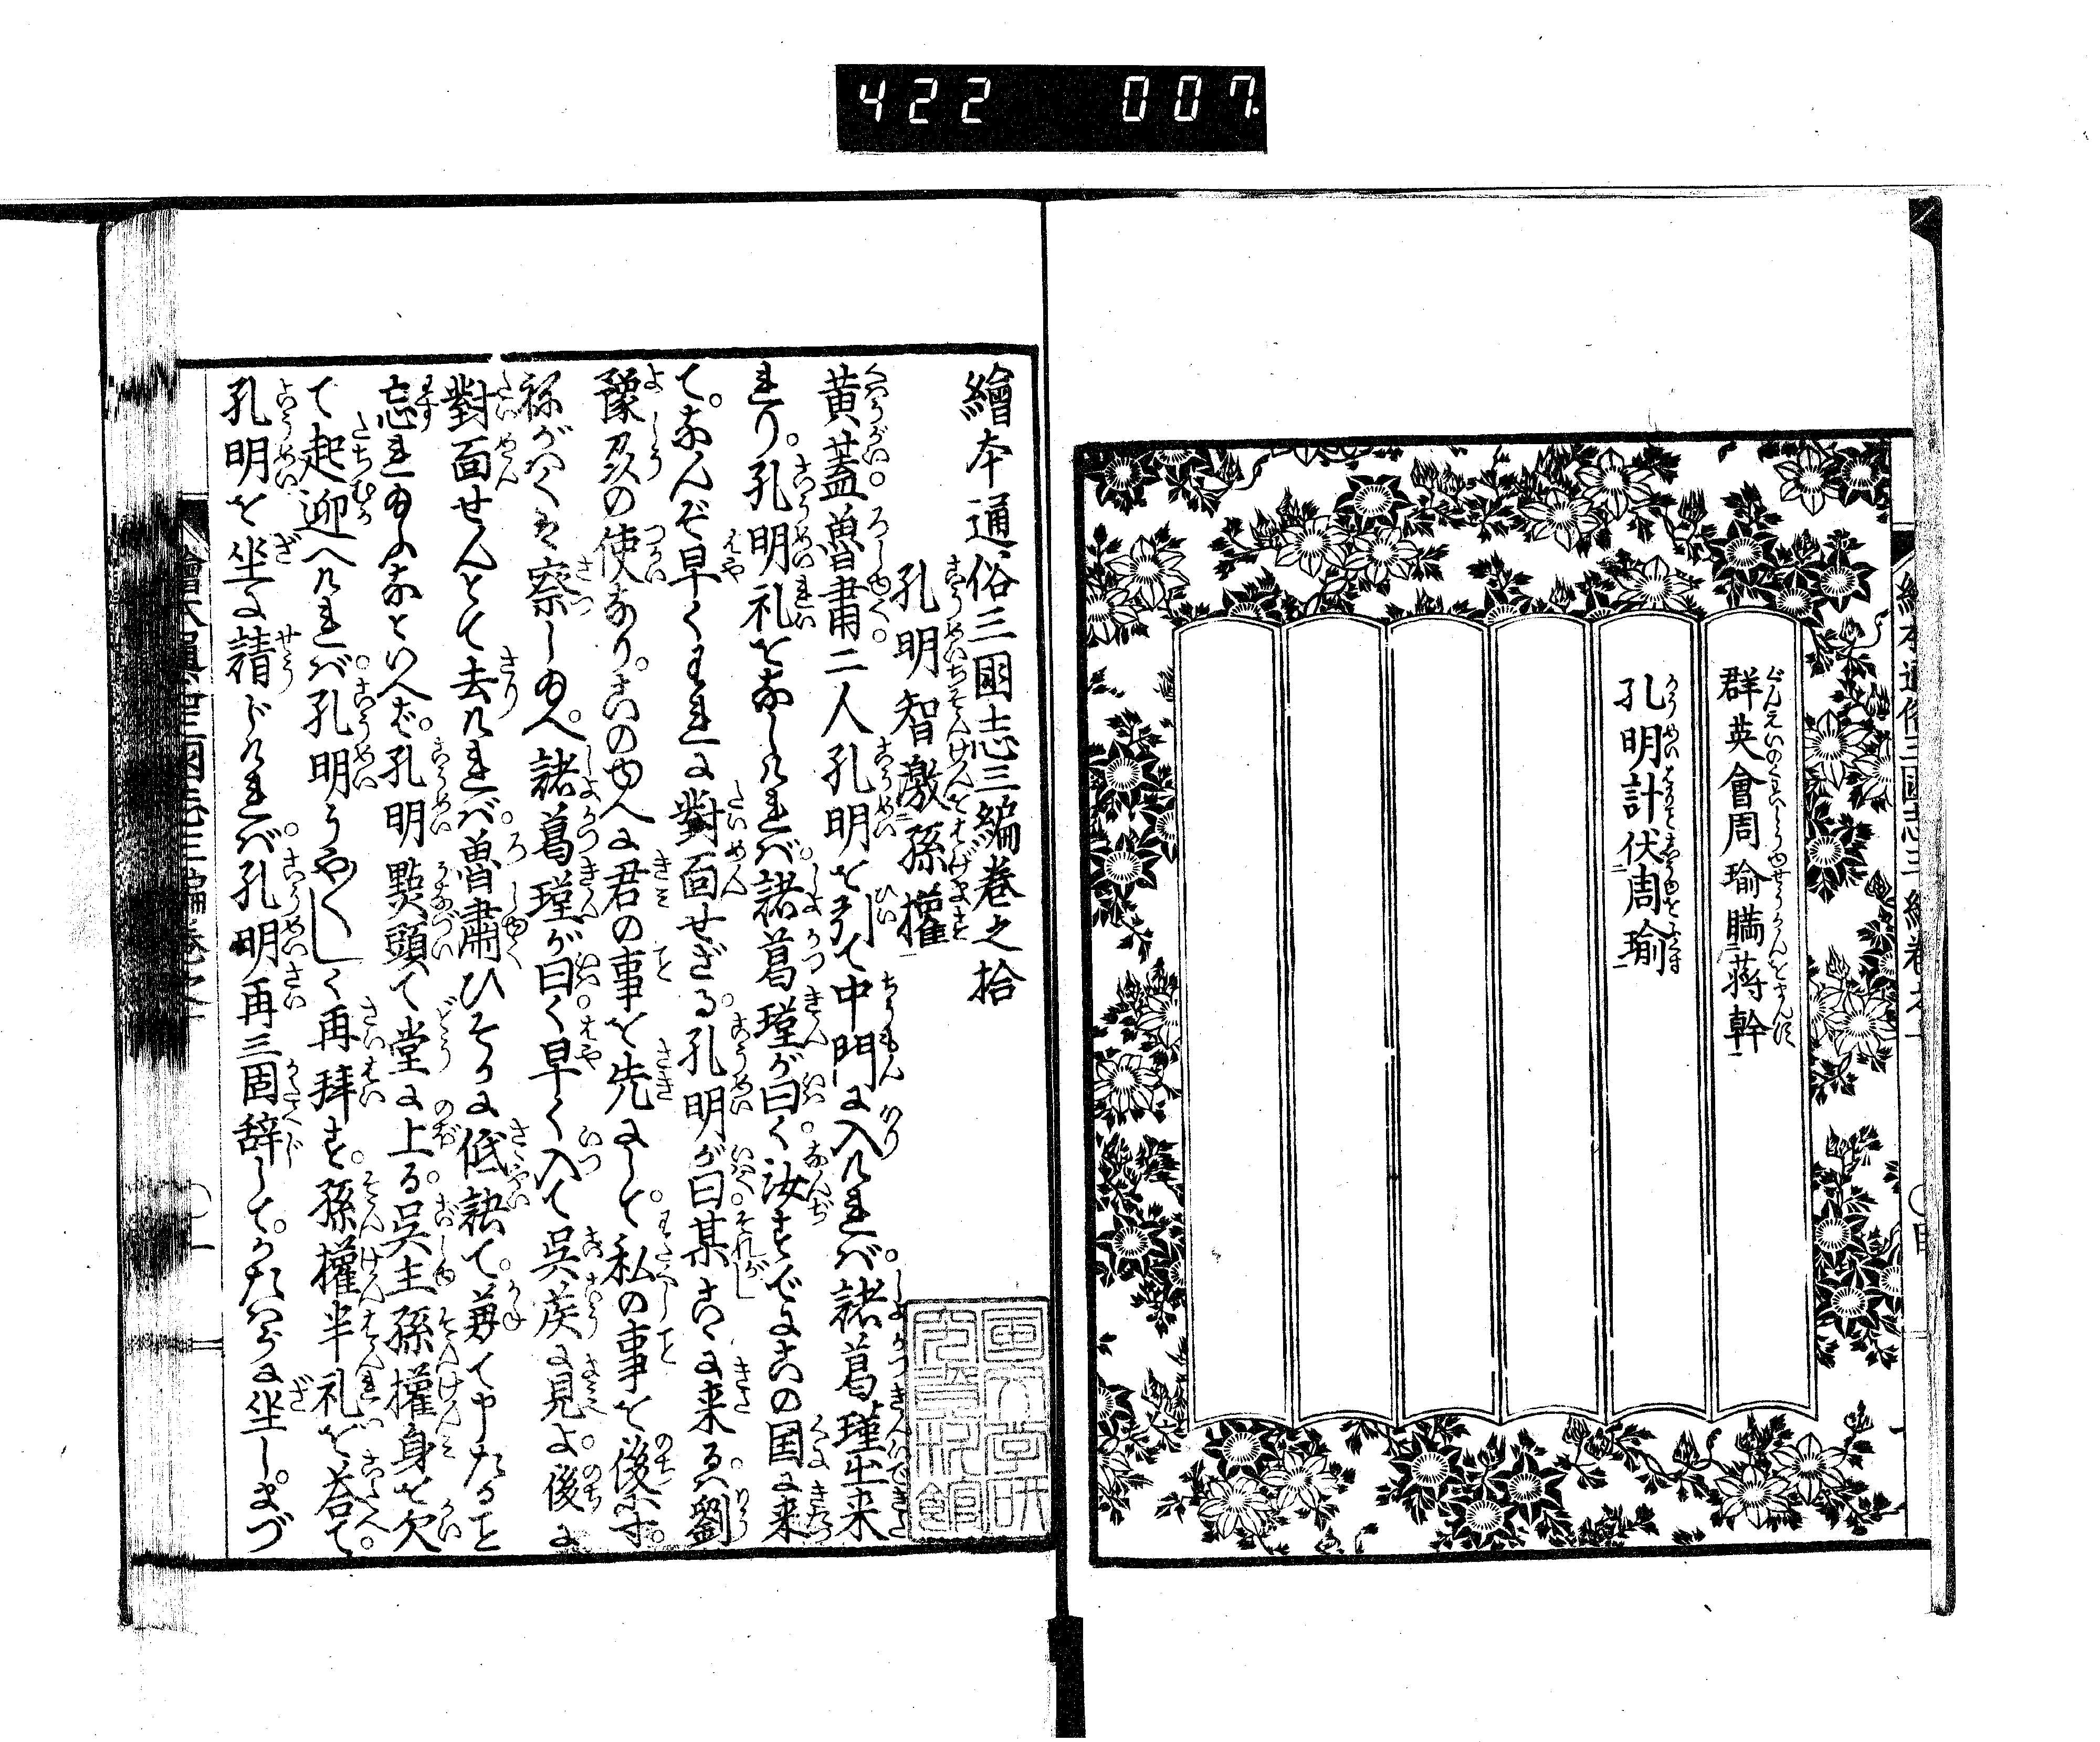 422 007
群英會周瑜瞞蒋幹
孔明計伏周瑜
繪本通俗三國志三編巻之拾
孔明智激孫權
黄蓋魯肅二人孔明を引て中門に入けれバ諸葛瑾出来
れり。孔明礼をなしけれバ。諸葛瑾が曰く。汝すでにこの国に来
て。なんぞ早くわれに對面せざる。孔明が曰。某こゝに来るハ。劉
豫州の使なり。この由へに君の事を先にして。私の事を後にす。
祢がハくハ察し給へ。諸葛瑾が曰く。早く入て呉侯に見よ。後に
對面せんとて去けれバ。魯肅ひそかに低訣て。兼て申たる事
忘れ給ふなといへば。孔明點頭て堂に上る。呉主孫權身を欠
て起迎へけれバ。孔明うや〱しく再拝す。孫權半礼を荅て。
孔明を坐に請じけれバ。孔明再三固辞して。かたハらに坐し。まづ